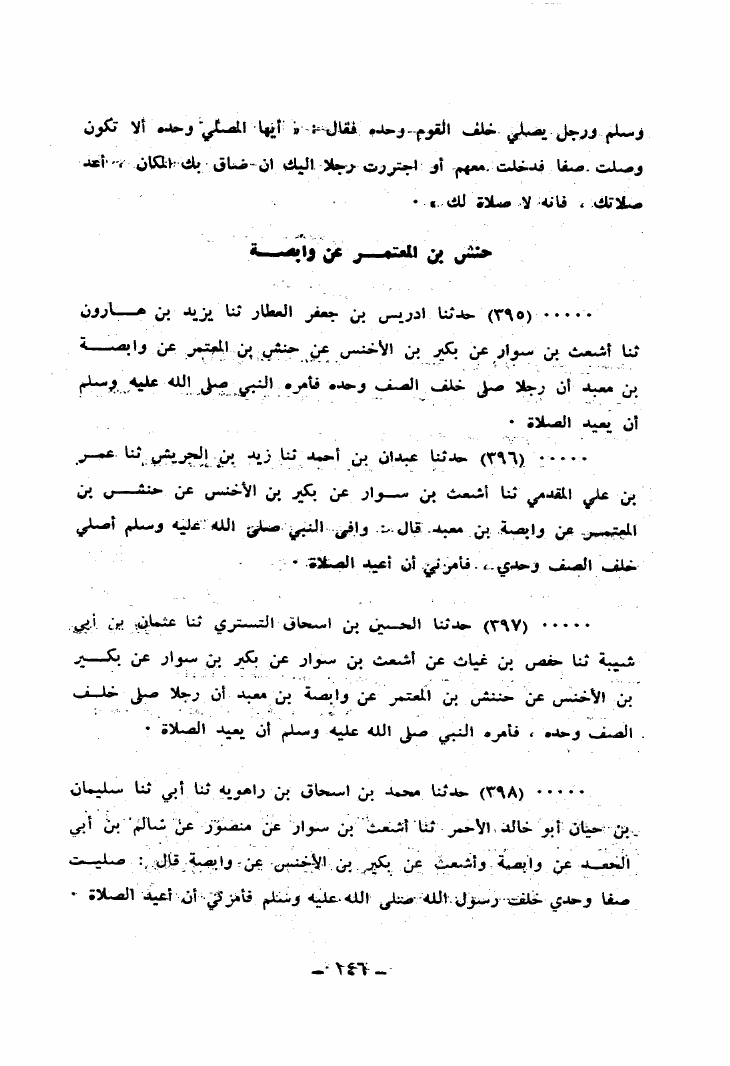 وسلم ورجل يصلي خلف القوم وحده فقال : « أيها المصلي وحده ألا تكون
وصلت صفا فدخلت معهم أو اجتررت رجلا اليك ان ضاق بك المكان ، أعد
صلاتك ، فانه لا صلاة لك » ٠
حنش بن المعتمـــر عن وابصـــة
٠٠٠٠٠ (٣٩٥) حدثنا ادريس بن جعفر العطار ثنا يزيد بن هـــارون
ثنا أشعث بن سوار عن بكير بن الأخنس عن حنش بن المعتمر عن وابصـــة
بن معبد أن رجلا صلى خلف الصف وحده فأمره النبي صلى الله عليه وسلم
أن يعيد الصلاة ٠
٠٠٠٠٠ (٣٩٦) حدثنا عبدان بن أحمد ثنا زيد بن الحريش ثنا عمـــر
بن علي المقدمي ثنا أشعث بن ســوار عن بكير بن الأخنس عن حنشــس بن
المعتمــر عن وابصة بن معبد قال : وافى النبي صلى الله عليه وسلم أصلي
خلف الصف وحدي ، فأمرني أن أعيد الصلاة ٠
٠٠٠٠٠ (٣٩٧) حدثنا الحسين بن اسحاق التستري ثنا عثمان بن أبي
شيبة ثنا حفص بن غياث عن أشعث بن سوار عن بكير بن سوار عن بكـــير
بن الأخنس عن حننش بن المعتمر عن وابصة بن معبد أن رجلا صلى خلــف
الصف وحده ، فأمره النبي صلى الله عليه وسلم أن يعيد الصلاة ٠
٠٠٠٠٠ (٣٩٨) حدثنا محمد بن اسحاق بن راهويه ثنا أبي ثنا سليمان
بن حيان أبو خالد الأحمر ثنا أشعث بن سوار عن منصور عن سالم بن أبي
الجعــد عن وابصة وأشعث عن بكير بن الأخنس عن وابصة قال : صليــت
صفا وحدي خلف رسول الله صلى الله عليه وسلم فأمرني أن أعيد الصلاة ٠
– ٢٤٦ –